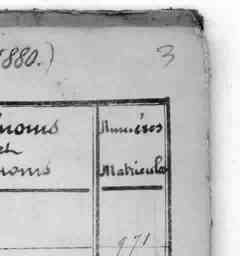 1880.)
3
noms
et
noms
Numéros
Matricula
971